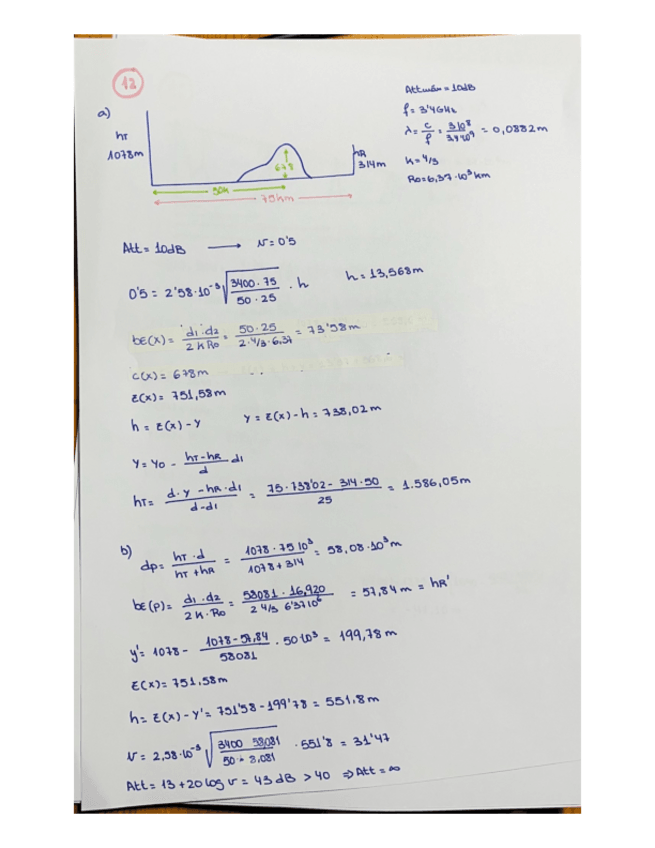 12
Attmáx = 10dB
a)
f = 3'4GHz
λ = c/f = 3·10⁸/3,4·10⁹ = 0,0882m
hT
1078m
hR
314m
678
k = 4/3
Ro = 6,37·10³km
50k
75km
Att = 10dB → ν = 0'5
0'5 = 2'58·10⁻³ √(3400·75/50·25) · h h = 13,568m
bE(x) = d1·d2/2KRo = 50·25/2·4/3·6,37 = 73'58m
c(x) = 678m
z(x) = 751,58m
h = z(x) - y y = z(x) - h = 738,02m
y = yo - hT-hR/d d1
hT = d·y - hR·d1/d-d1 = 75·738'02 - 314·50/25 = 1.586,05m
b)
dp = hT·d/hT+hR = 1078·75·10³/1078+314 = 58,08·10³m
bE(p) = d1·d2/2K·Ro = 58081·16,920/2 4/3 6'37 10⁶ = 57,84m = hR'
y' = 1078 - 1078-57,84/58081 · 50·10³ = 199,78m
z(x) = 751,58m
h = z(x) - y' = 751'58 - 199'78 = 551,8m
ν = 2,58·10⁻³ √(3400 58,081/50· 8,081) · 551'8 = 31'47
Att = 13 + 20 log ν = 43dB > 40 ⇒ Att = ∞